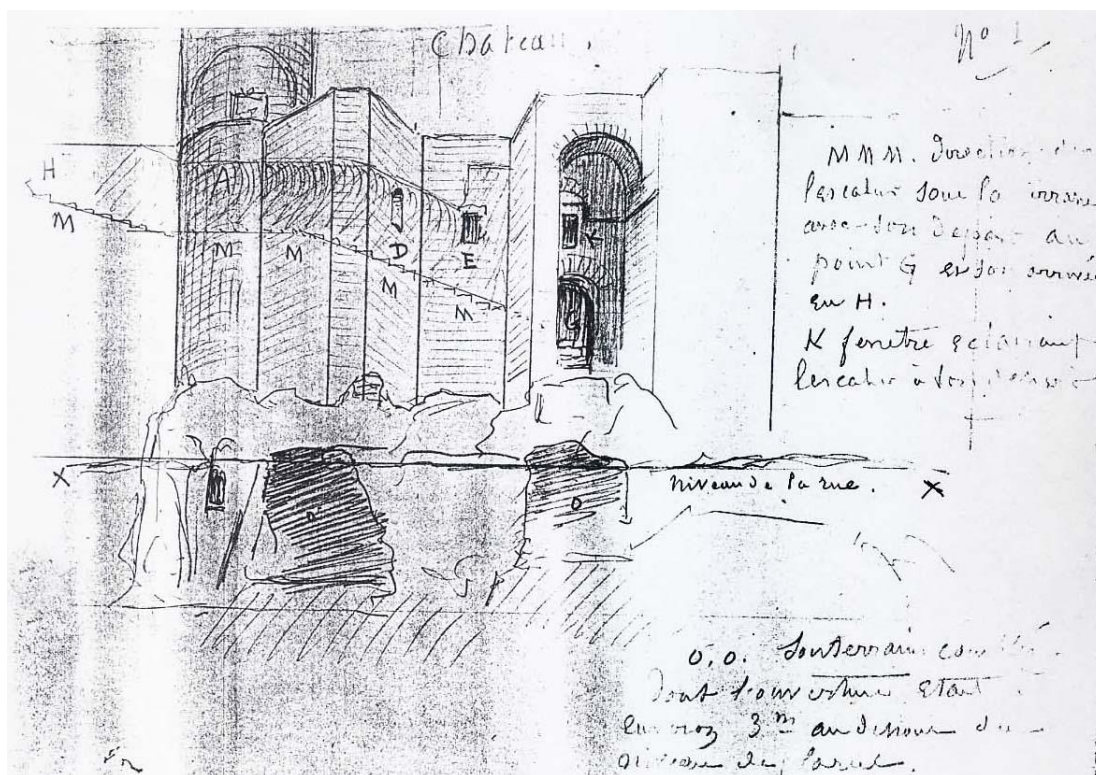 Chateau.
No 1
H
A
M
M
M
D
M
E
M
K
G
M M M. direction
lescalier sous la
avec son depart au
point G et son arrivée
en H.
K fenetre eclairant
lescalier à son
X
niveau de la rue.
X
O
O
O.O. Souterrain
dont l'ouverture etait
environ 3m au dessous du
niveau de la rue.